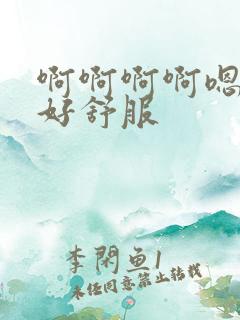 啊啊啊啊嗯
好舒服
李閑鱼1
未经同意禁止转载